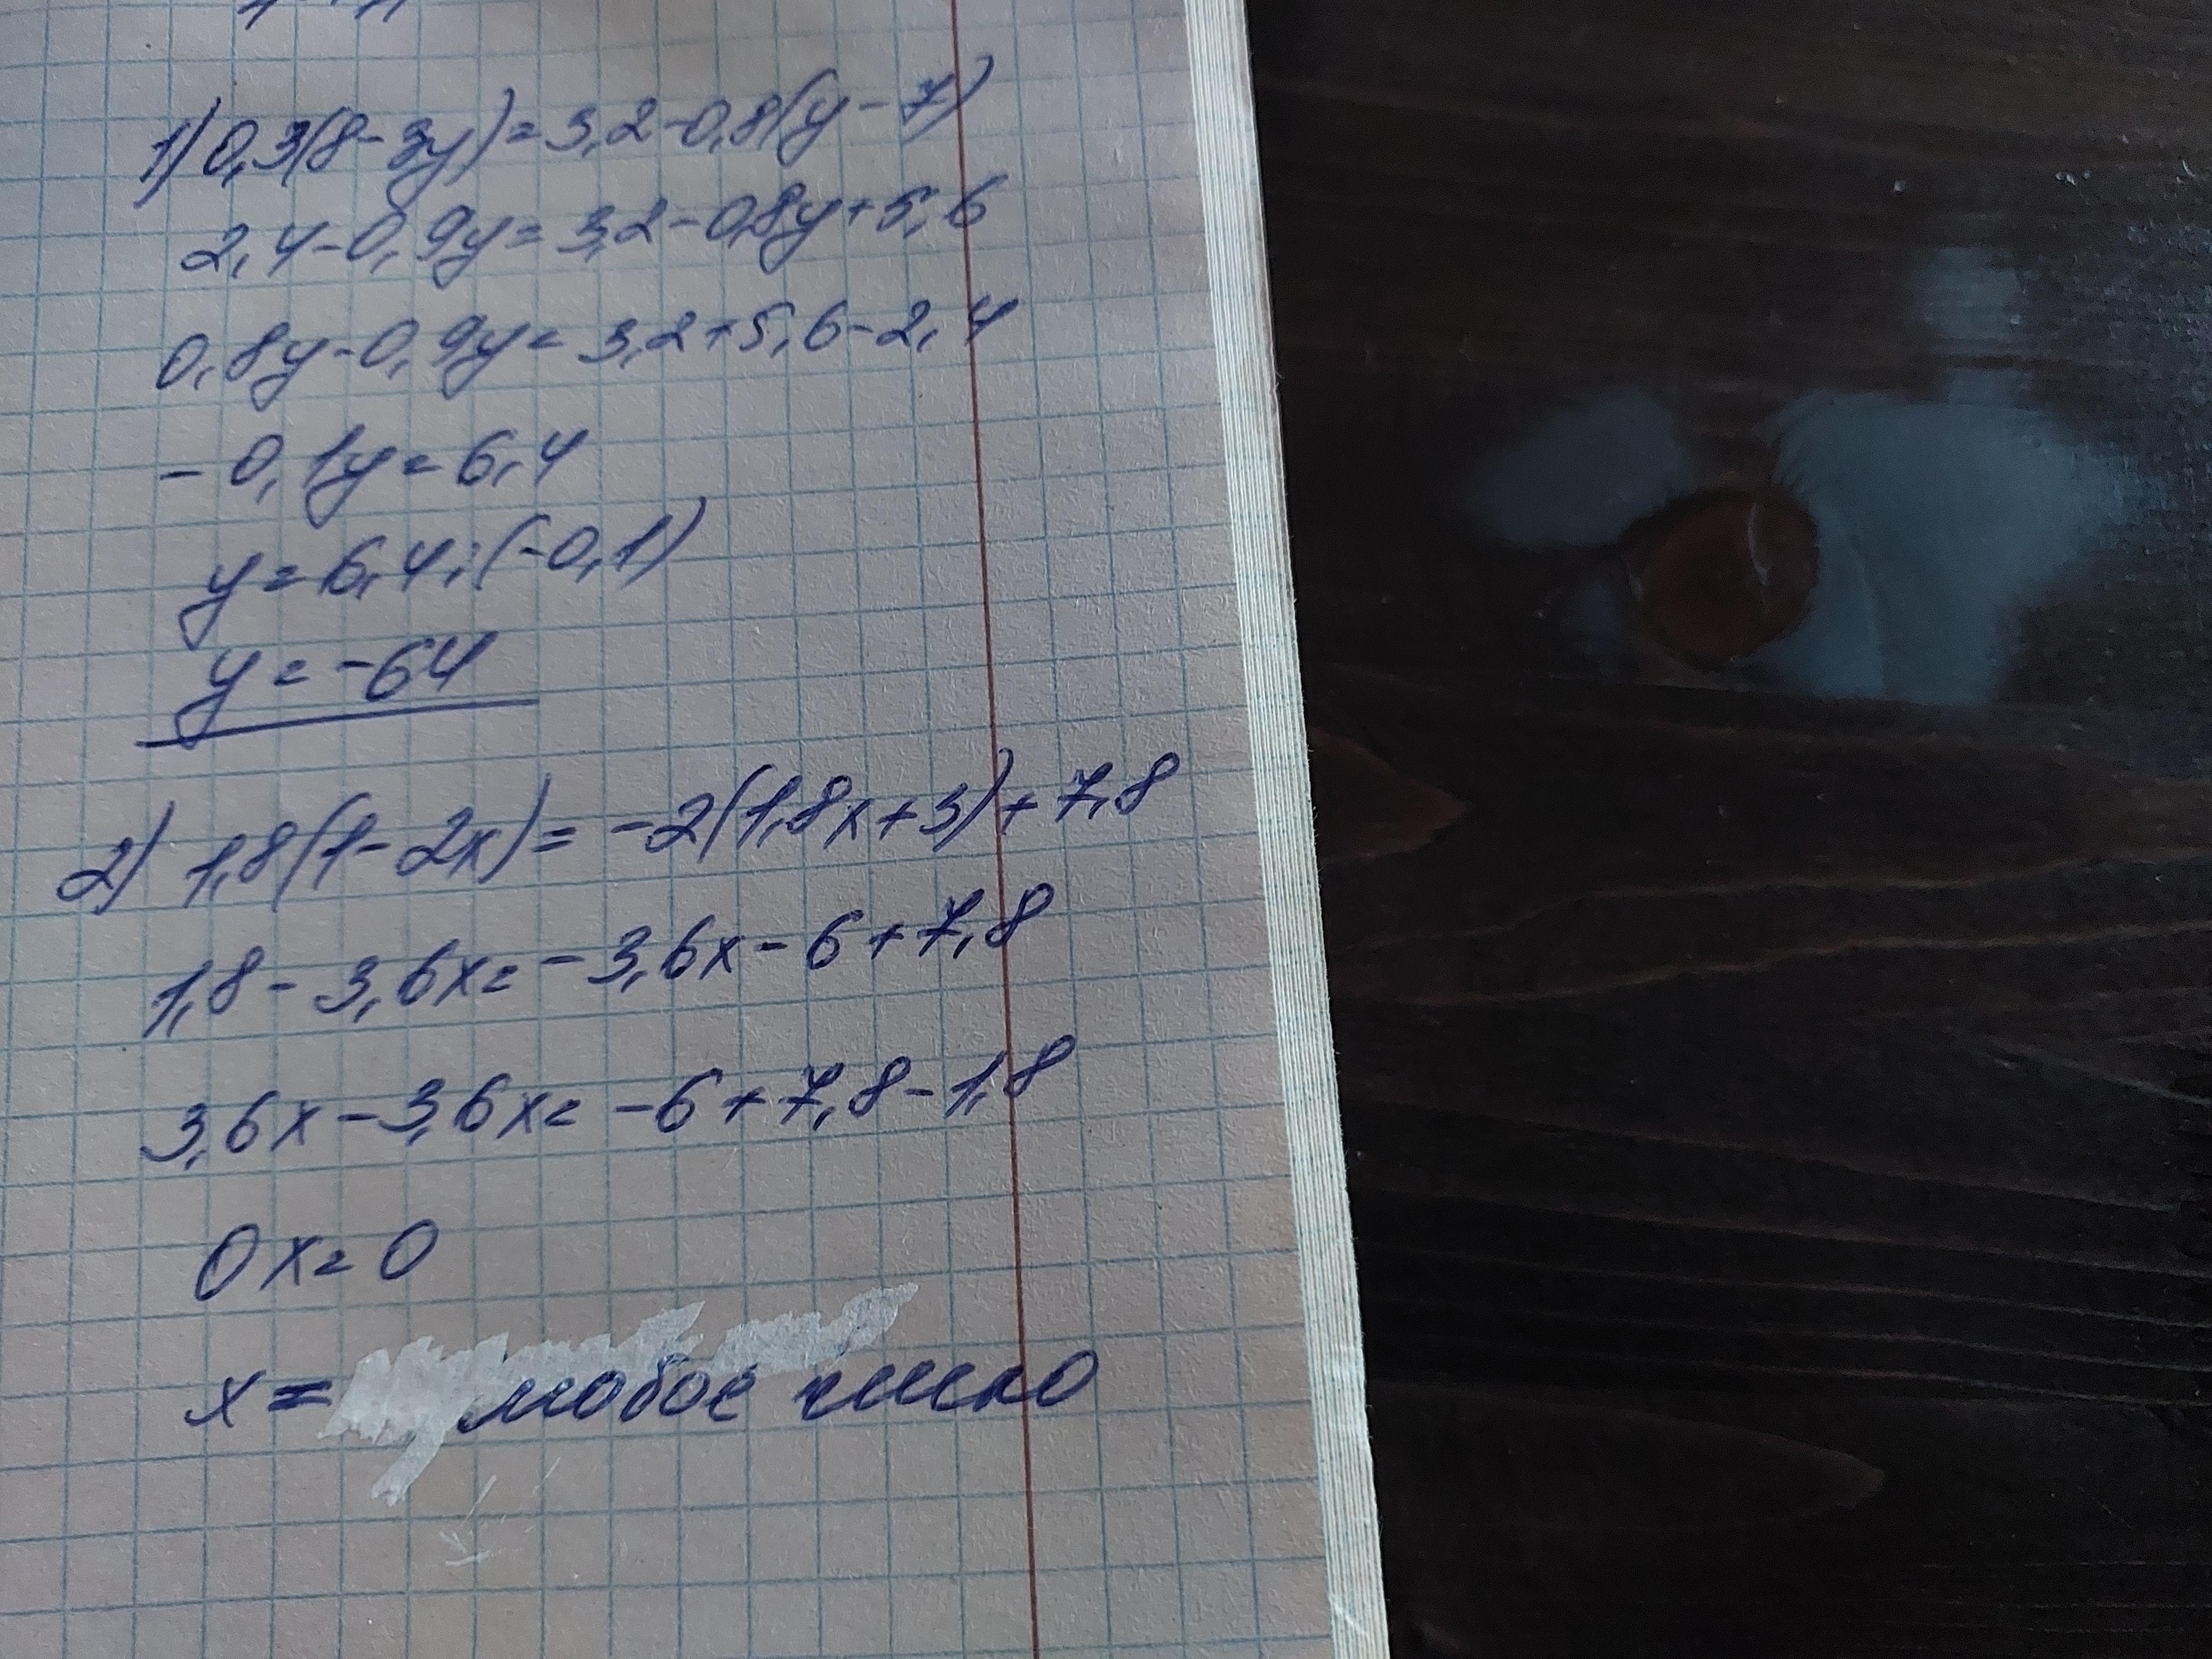 1) 0,3(8-3y)=3,2-0,8(y-7)
2,4-0,9y=3,2-0,8y+5,6
0,8y-0,9y=3,2+5,6-2,4
-0,1y=6,4
y=6,4:(-0,1)
y=-64
2) 1,8(1-2x)=-2(1,8x+3)+7,8
1,8-3,6x=-3,6x-6+7,8
3,6x-3,6x=-6+7,8-1,8
0x=0
x= любое число